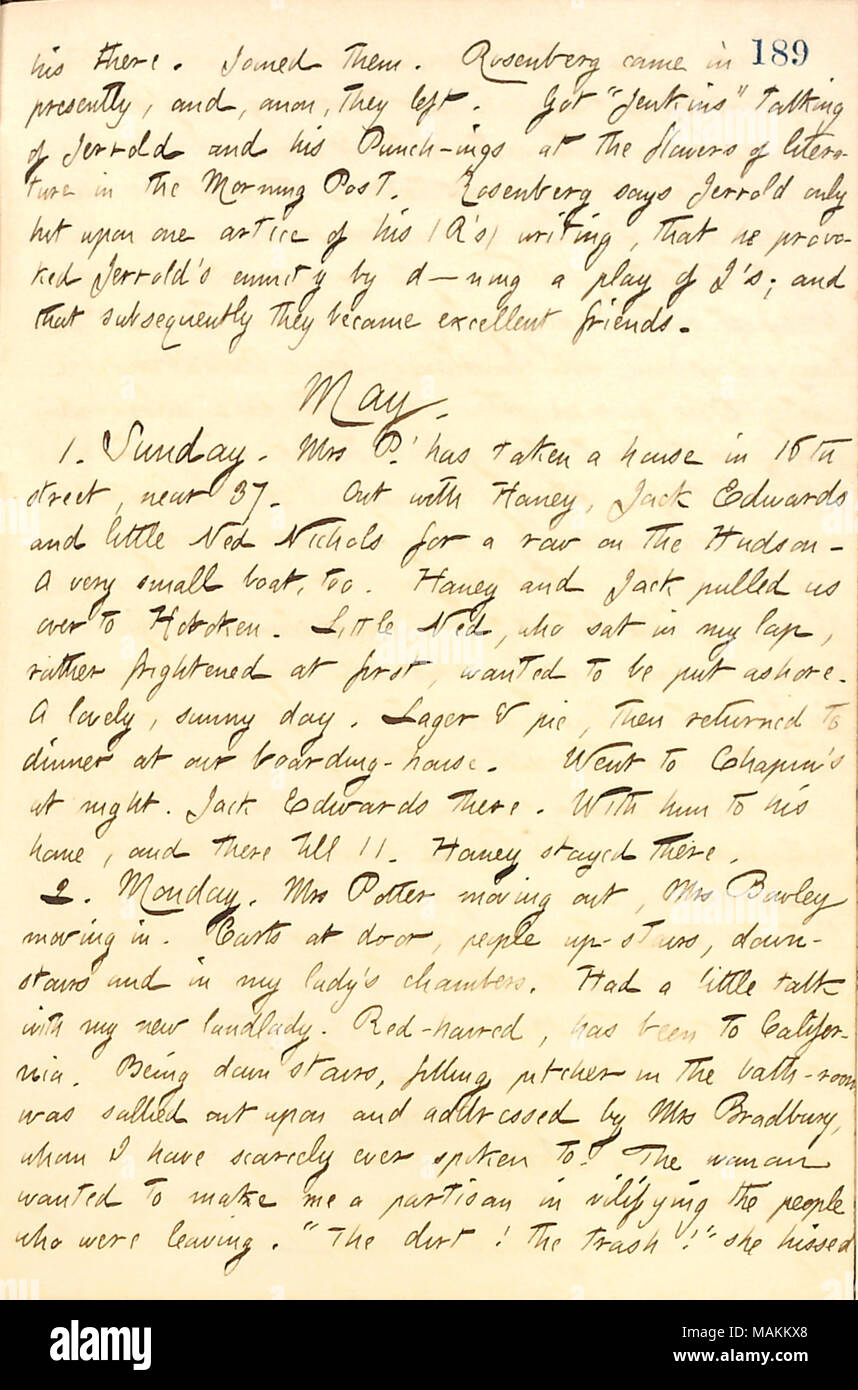 189
his there. Joined them. Rosenberg came in
presently, and, anon, they left. Got "Jenkins" talking
of Jerrold and his Punch-ings at the flowers of litera-
ture in the Morning Post. Rosenberg says Jerrold only
hit upon one artice of his (R's) writing, that he provo-
ked Jerrold's enmity by d—ning a play of J's; and
that subsequently they became excellent friends.
May.
1. Sunday. Mrs P. has taken a house in 16th
street, near 37. Out with Haney, Jack Edwards
and little Ned Nichols for a row on the Hudson-
A very small boat, too. Haney and Jack pulled us
over to Hoboken. Little Ned, who sat in my lap,
rather frightened at first, wanted to be put ashore.
A lovely, sunny day. Lager & pie, then returned to
dinner at our boarding-house. Went to Chapin's
at night. Jack Edwards there. With him to his
home, and there till 11. Haney stayed there.
2. Monday. Mrs Potter moving out, Mrs Bowley
moving in. Carts at door, people up-stairs, down-
stairs and in my lady's chambers. Had a little talk
with my new landlady. Red-haired, has been to Califor-
nia. Being down stairs, filling pitcher in the bath-room
was sallied out upon and addressed by Mrs Bradbury,
whom I have scarcely ever spoken to. The woman
wanted to make me a partisan in vilifying the people
who were leaving. "The dirt! the trash!" she hissed
alamy
Image ID: MAKKX8
www.alamy.com